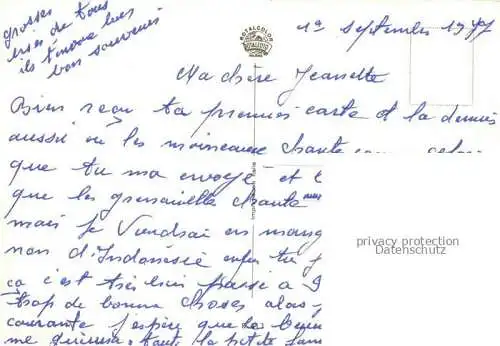 grosses
bises de tous
ils trouve
bon souvenir
ROTALCOLOR
1er septembre 1977
Ma chère Jeannette
Bien reçu ta première carte et la dernière
aussi où les moineaux chante
que tu ma envoyé et
que les grenouille chante
mais je Voudrai en mang
non d'Indonésie enfin tu
ça c'est très bien passé a
trop de bonne choses alas
courante j'espère que
me toute la petite fam
privacy protection
Datenschutz